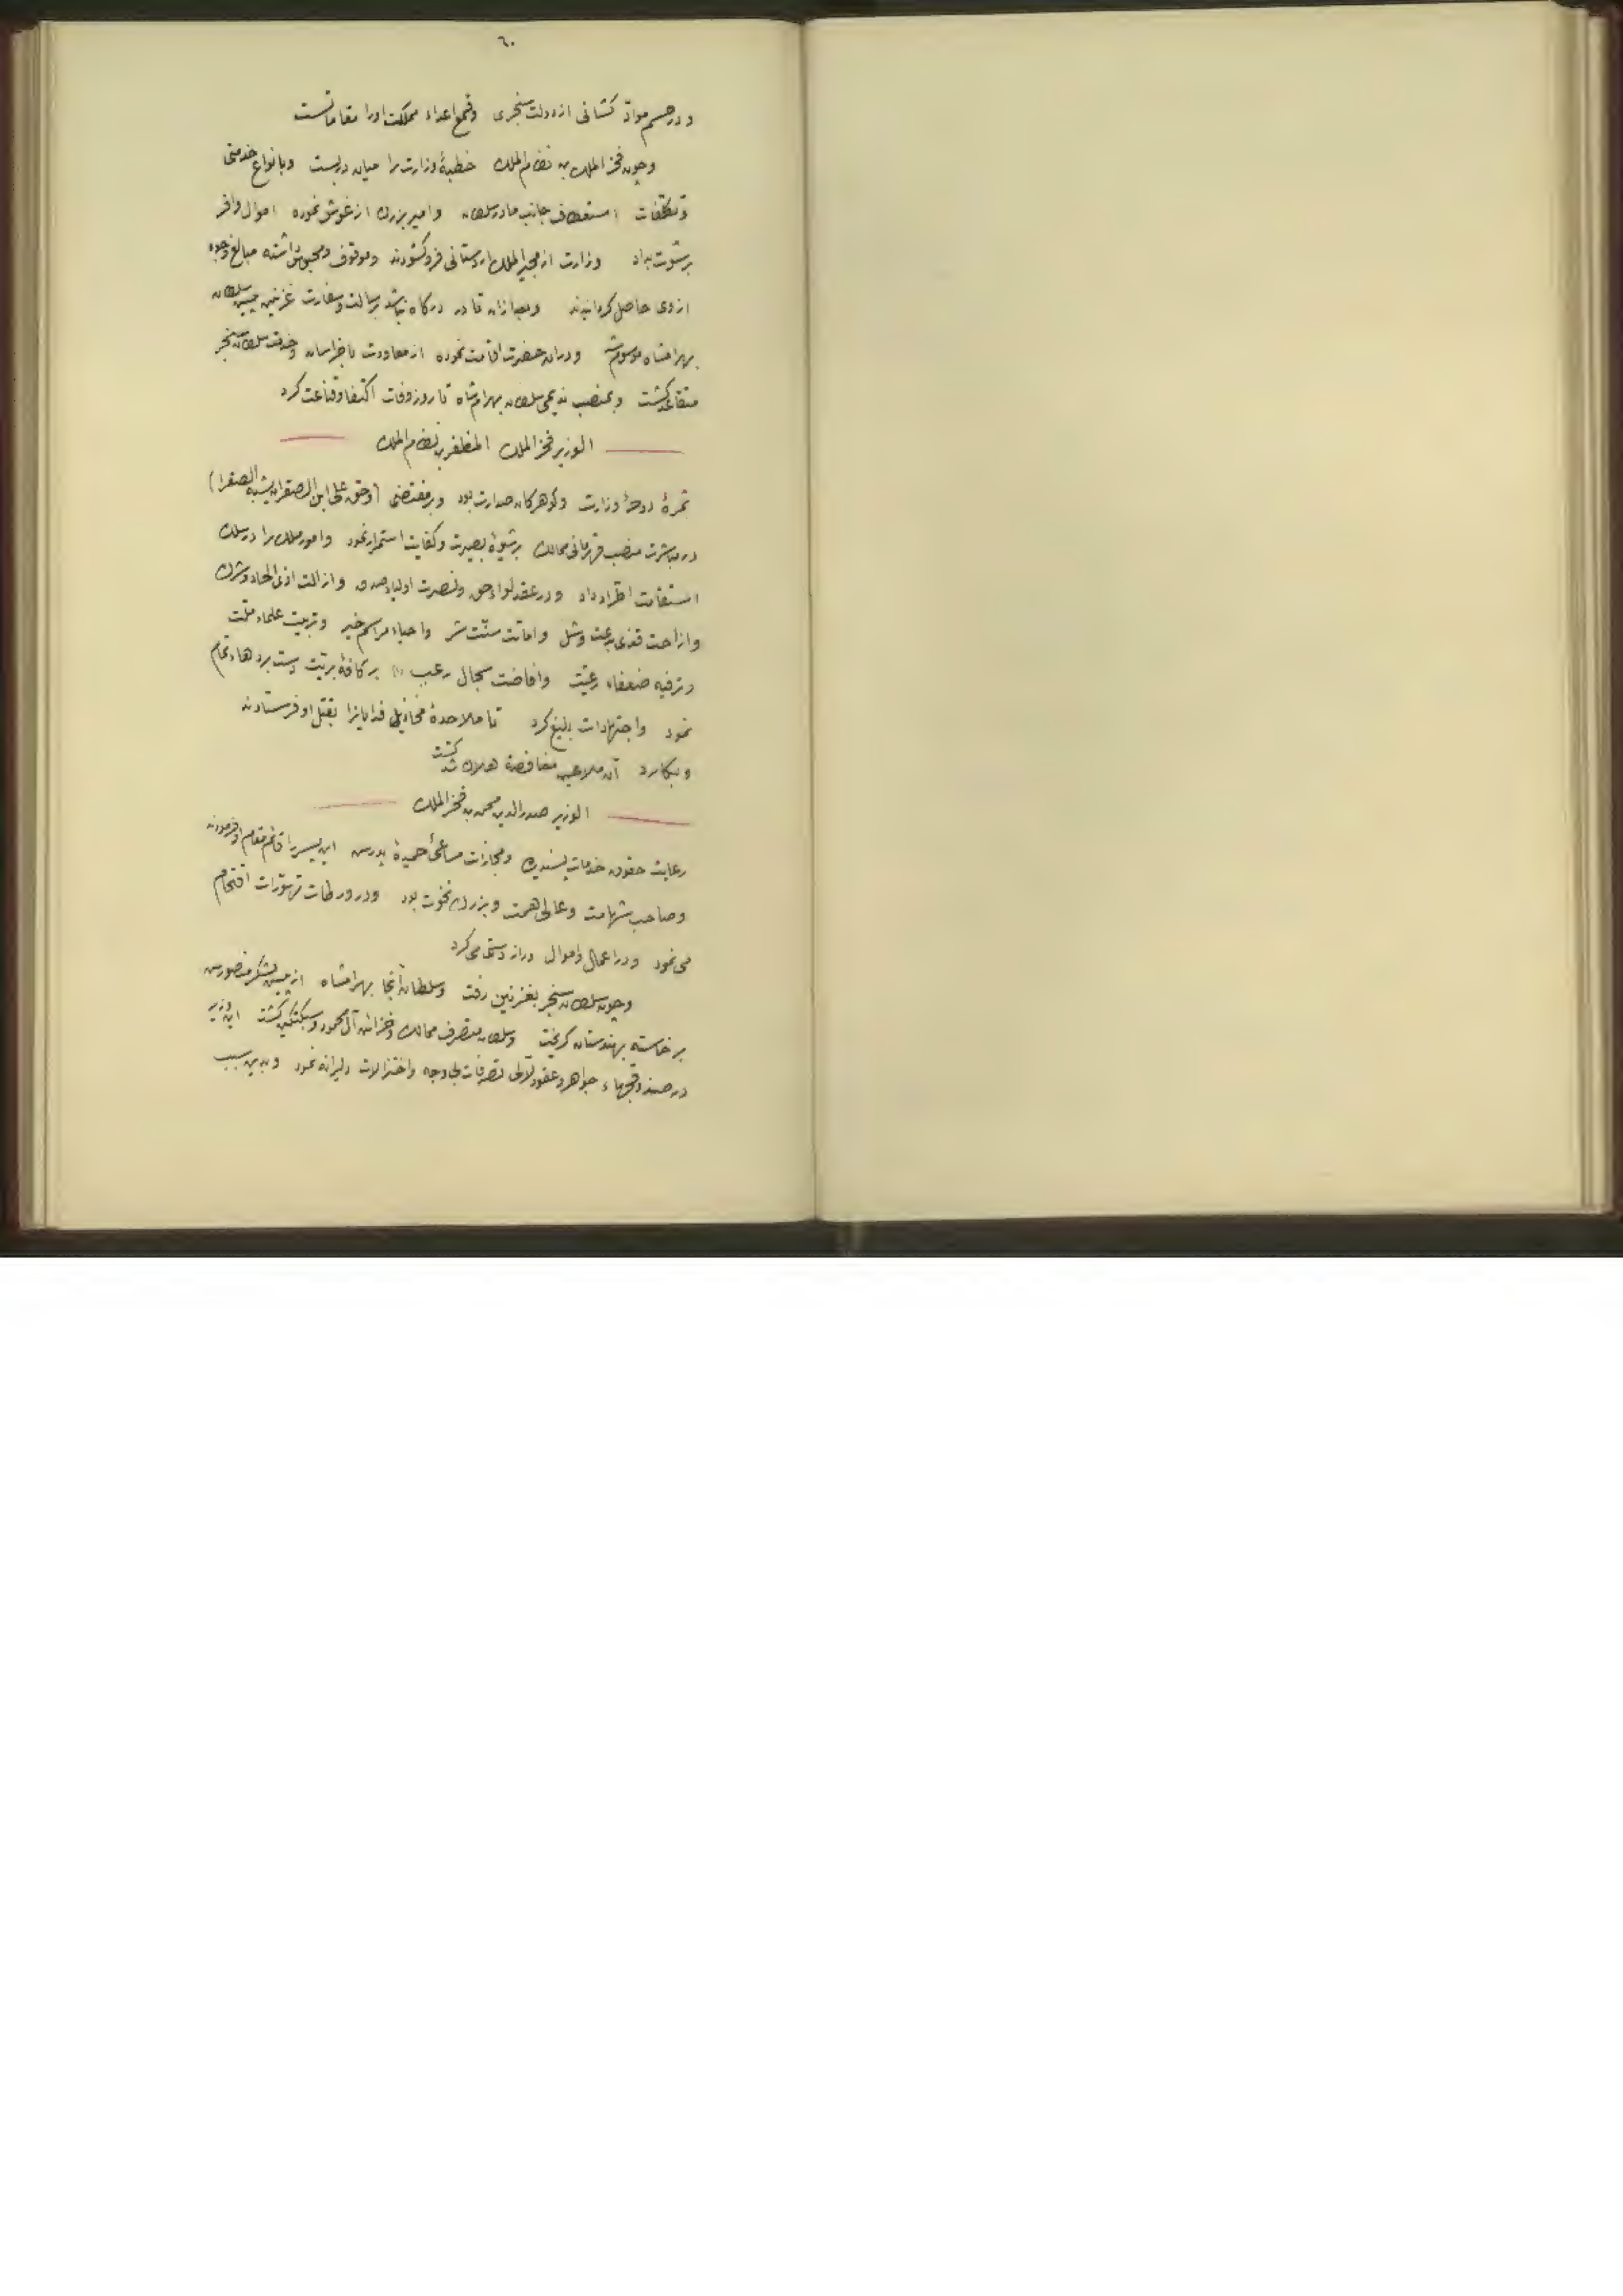 ٦٠
و در حسم موادّ کشانی از دولت سنجری وقمع اعداء مملکت اورا مقاماتست
وچون فخر الملک بن نظام الملک خطبهٔ وزارت را میان دربست وبانواع خدمتی
وتکلّفات استعطاف جانب مادر سلطان وامیر بزرک ارغوش نموده اموال وافر
برشوت بداد وزارت از مجیر الملک اردستانی فرو کشودند وموقوف ومحبوس داشته مبالغ وجوه
ازوی حاصل کردانیدند وبعد ازان تا در درکاه نباشد برسالت وسفارت غزنین پیش سلطان
بهرامشاه موسوم شد ودران حضرت اقامت نموده از معاودت با خراسان وخدمت سلطان سنجر
متقاعد کشت وبمنصب ندیمی سلطان بهرامشاه تا روز وفات اکتفا وقناعت کرد
الوزیر فخر الملک المظفر بن نظام الملک
ثمرهٔ دوحهٔ وزارت وکوهر کان صدارت بود وبر مقتضی (وحقّ علی ابن الصقر ان یشبه الصقرا)
در مباشرت منصب قهرمانی ممالک بر شیوهٔ بصیرت وکفایت استمرار نمود وامور ملک را در سلک
استقامت اطّراد داد ودر عقد لواء حق ونصرت اولیاء صدق وازالت اذی الحاد وشرک
وازاحت قذی بدعت وشک واماتت سنّت شر واحیاء مراسم خیر وتربیت علماء ملّت
وترفیه ضعفاء رعیّت وافاضت سجال رعب (۱) بر کافهٔ بریّت دست بردهاء تمام
نمود واجتهادات بلیغ کرد تا ملاحدهٔ مخاذیل فدایانرا بقتل او فرستادند
وبکارد آن ملاعین مغافصة هلاک شد کشت
الوزیر صدر الدین محمد بن فخر الملک
رعایت حقوق خدمات پسندیده ومجازات مساعیٔ حمیدهٔ پدرش این پسر را قائم مقام او فرمودند
وصاحب شهامت وعالی همت وبزرک نخوت بود ودر ورطات تهوّرات اقتحام
می نمود ودر اعمال واموال دراز دستی می کرد
وچون سلطان سنجر بغزنین رفت وسلطان آنجا بهرامشاه از پیش لشکر منصورش
برخاسته بهندوستان کریخت وسلطان متصرف ممالک وخزائن آل محمود وسبکتکین کشت این وزیر
در صندوقچهاء جواهر وعقود لآلی تصرفات بی وجه واختزالات دلیرانه نمود وبدین سبب